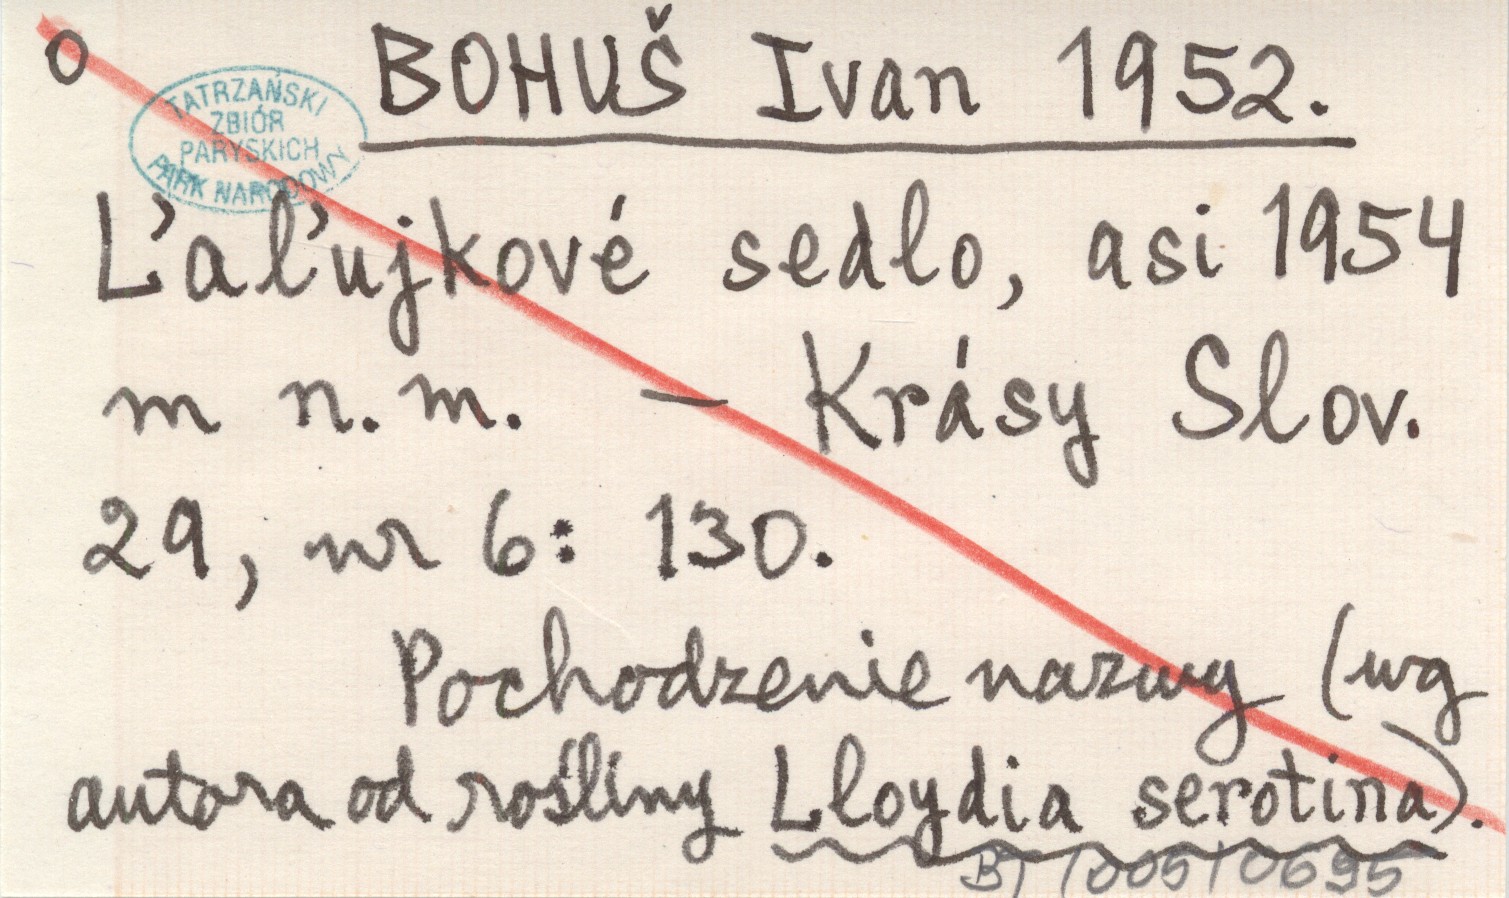 O
BOHUŠ Ivan 1952.
TATRZAŃSKI
ZBIÓR
PARYSKICH
PARK NARODOWY
Ľaľujkové sedlo, asi 1954
m n. m. — Krásy Slov.
29, nr 6: 130.
Pochodzenie nazwy (wg
autora od rośliny Lloydia serotina).
BJ/005/0695